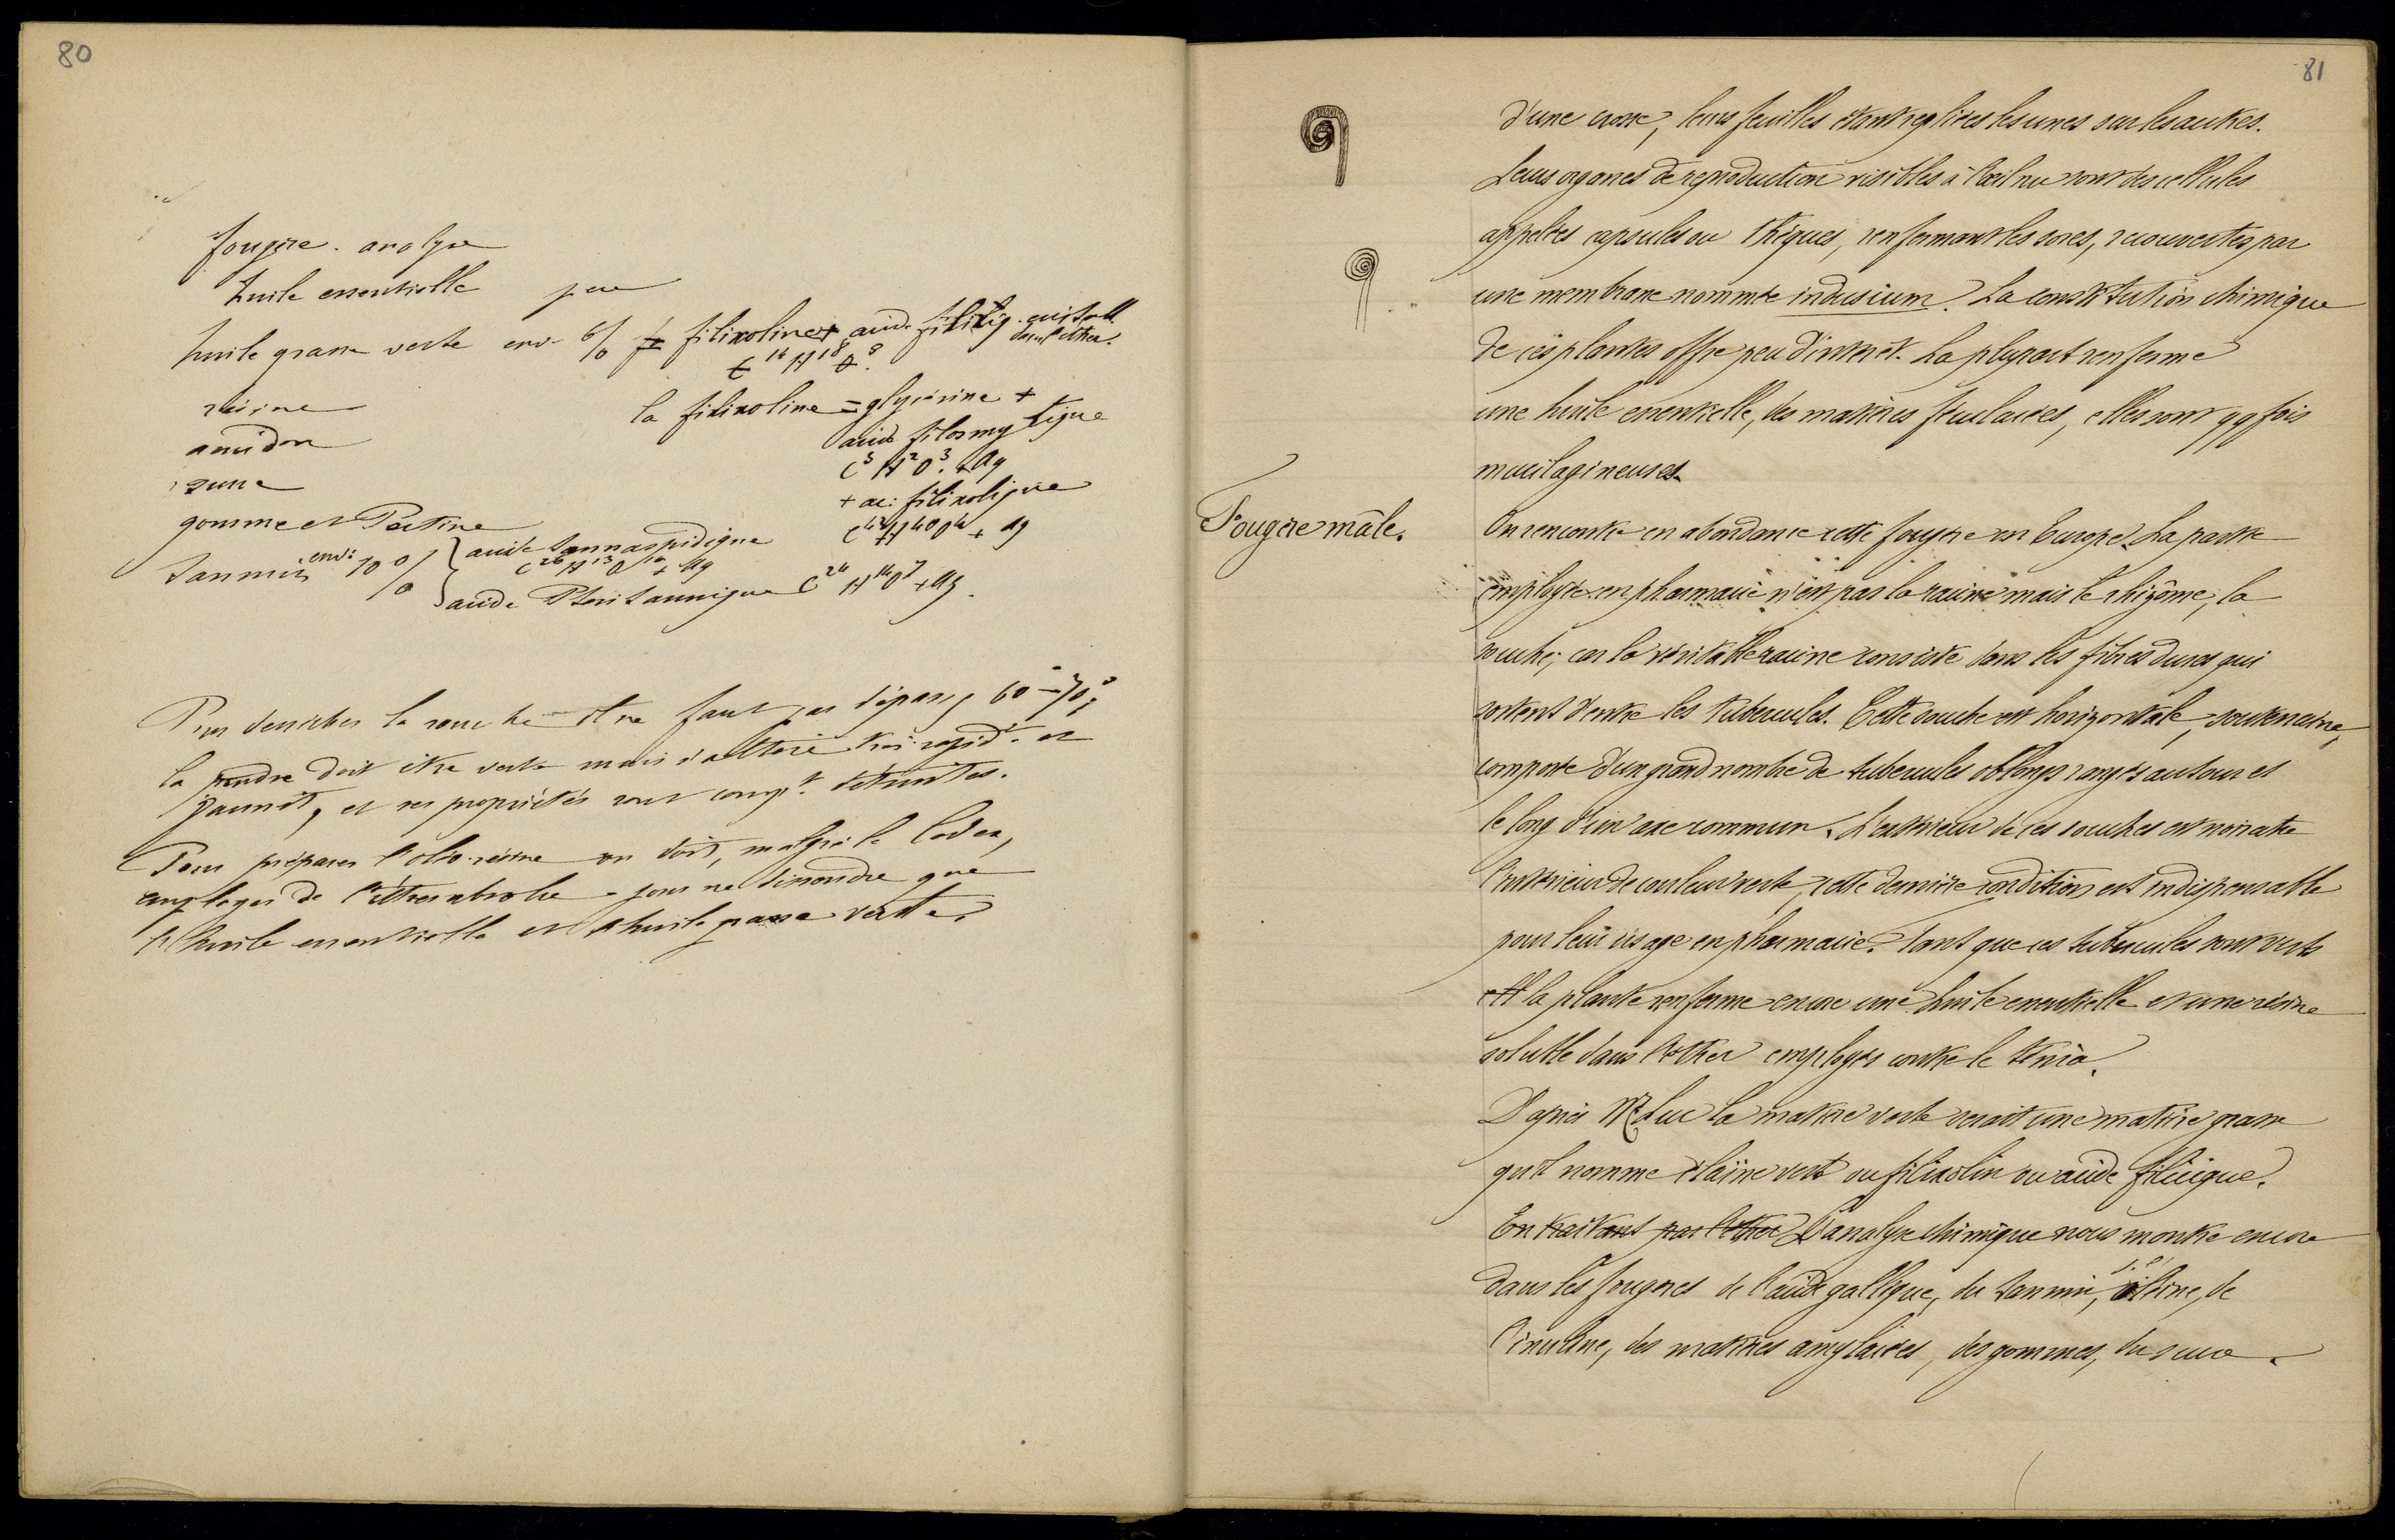 80
fougère. analyse
huile essentielle peu
huile grasse verte env. 6% filixoline + acid. filixiq. cristall. dans l'éther.
C14 H18 O8.
résine
la filixoline = glycérine +
amidon
acide filosmylique
C3 H2 O3. + Aq
sucre
+ ac: filixolique
gomme et Pectine
C42 H40 O4 + Aq
tannin env: 10% acide tannaspidique
C26 H13 O10 + Aq
acide Pteritannique C24 H14 O7 + Aq.
Pour dessécher la souche il ne faut pas dépass, 60°-70°;
la poudre doit être verte mais s'altère très-rapidt. et
jaunit, et ses propriétés sont compt. détruites.
Pour préparer l'oléo-résine on doit, malgré le Codex,
employer de l'éther absolu - pour ne dissoudre que
l'huile essentielle et l'huile grasse verte.
81
d'une crosse, leurs feuilles étant repliées les unes sur les autres.
Leurs organes de reproduction visibles à l'œil nu sont des cellules
appelées capsules ou thèques, renfermant les sores, recouvertes par
une membrane nommée indusium. La constitution chimique
de ces plantes offre peu d'intérêt. La plupart renferme
une huile essentielle, des matières féculacées, elles sont qq fois
mucilagineuses.
Fougère mâle.
On rencontre en abondance cette fougère en Europe. La partie
employée en pharmacie n'est pas la racine mais le rhizôme, la
souche; car la véritable racine consiste dans les fibres dures qui
sortent d'entre les tubercules. Cette souche est horizontale, souterraine,
composée d'un grand nombre de tubercules oblongs rangés autour et
le long d'un axe commun. L'extérieur de ces souches est noirâtre
l'intérieur de couleur verte, cette dernière condition est indispensable
pour leur usage en pharmacie. Tant que ces tubercules sont verts
ell la plante renferme encore une huile essentielle et une résine
soluble dans l'éther employés contre le ténia.
D'après Mr Luc la matière verte serait une matière grasse
qu'il nomme élaïne verte ou filixolin ou acide filicique.
En traitant par l'éther L'analyse chimique nous montre encore
dans les fougères de l'acide gallique, du tannin, de l'inuline, des matières amylacées, des gommes, du sucre.